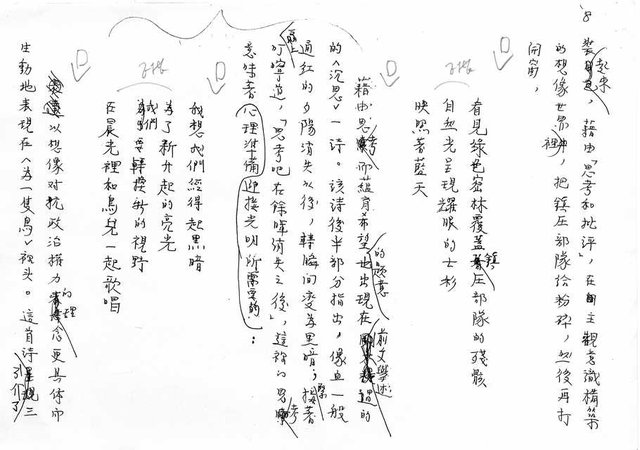 8
裝起來，藉由「思考和批評」，在自主觀意識構築
的想像世界裡，把鎮压部隊給粉碎，然後再打
開窗，
看見綠色密林覆蓋鎮压部隊的殘骸
自然光呈現耀眼的士杉
映照著藍天
藉由思考而蘊育希望的題意也出現在前文學述的
的〈沉思〉一詩。該詩後半部分指出，像血一般
通紅的夕陽消失以後，轉瞬間变為黑暗；接著
叮嚀道，「思考吧在餘暉消失之後」，這裡的思考
意味著心理準備迎接光明所需要的：
我想我們經得起黑暗
為了新升起的亮光
我們要轉換新的視野
在晨光裡和鳥兒一起歌唱
以想像对抗政治權力的理念更具体而
生動地表現在〈為一隻鳥〉裡头。這首詩